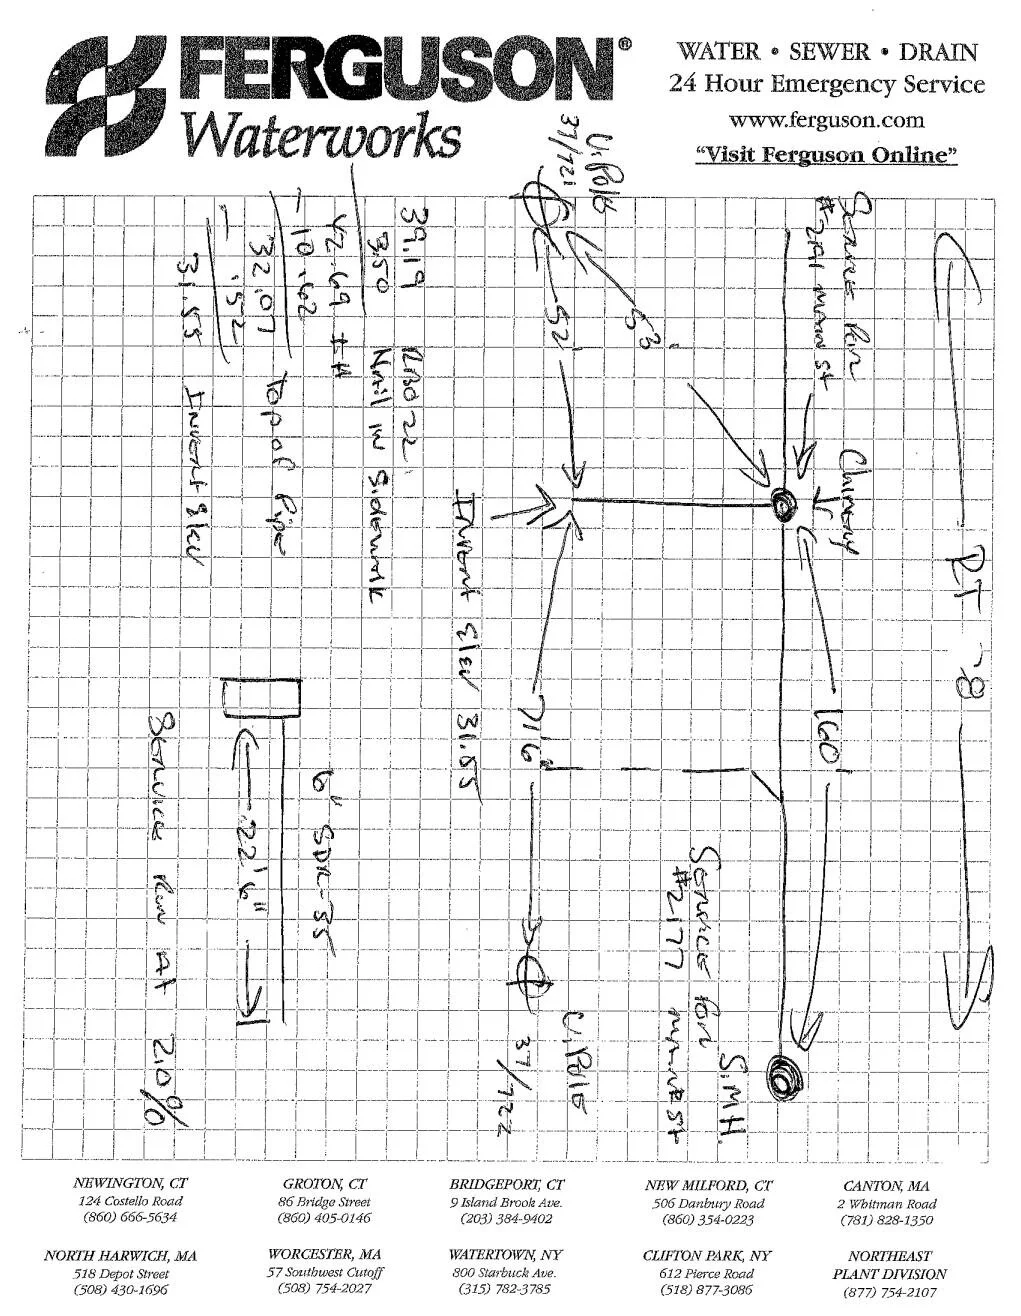 FERGUSON®
Waterworks
WATER • SEWER • DRAIN
24 Hour Emergency Service
www.ferguson.com
"Visit Ferguson Online"
RT 28
Service For
#2191 MAIN St
Chimney
160'
S.MH.
Service For
#2177 MAIN St
U.Pole
37/721
53'
52'
71'6"
U.Pole
37/722
Invert Elev 31.55
39.19
3.50 Nail in Sidewalk
42.69 IH
- 10.62
32.07 Top of Pipe
- .52
31.55 Invert Elev
6" SDR-35
22'6"
Services Run At 2.0%
NEWINGTON, CT
124 Costello Road
(860) 666-5634
GROTON, CT
86 Bridge Street
(860) 405-0146
BRIDGEPORT, CT
9 Island Brook Ave.
(203) 384-9402
NEW MILFORD, CT
506 Danbury Road
(860) 354-0223
CANTON, MA
2 Whitman Road
(781) 828-1350
NORTH HARWICH, MA
518 Depot Street
(508) 430-1696
WORCESTER, MA
57 Southwest Cutoff
(508) 754-2027
WATERTOWN, NY
800 Starbuck Ave.
(315) 782-3785
CLIFTON PARK, NY
612 Pierce Road
(518) 877-3086
NORTHEAST
PLANT DIVISION
(877) 754-2107